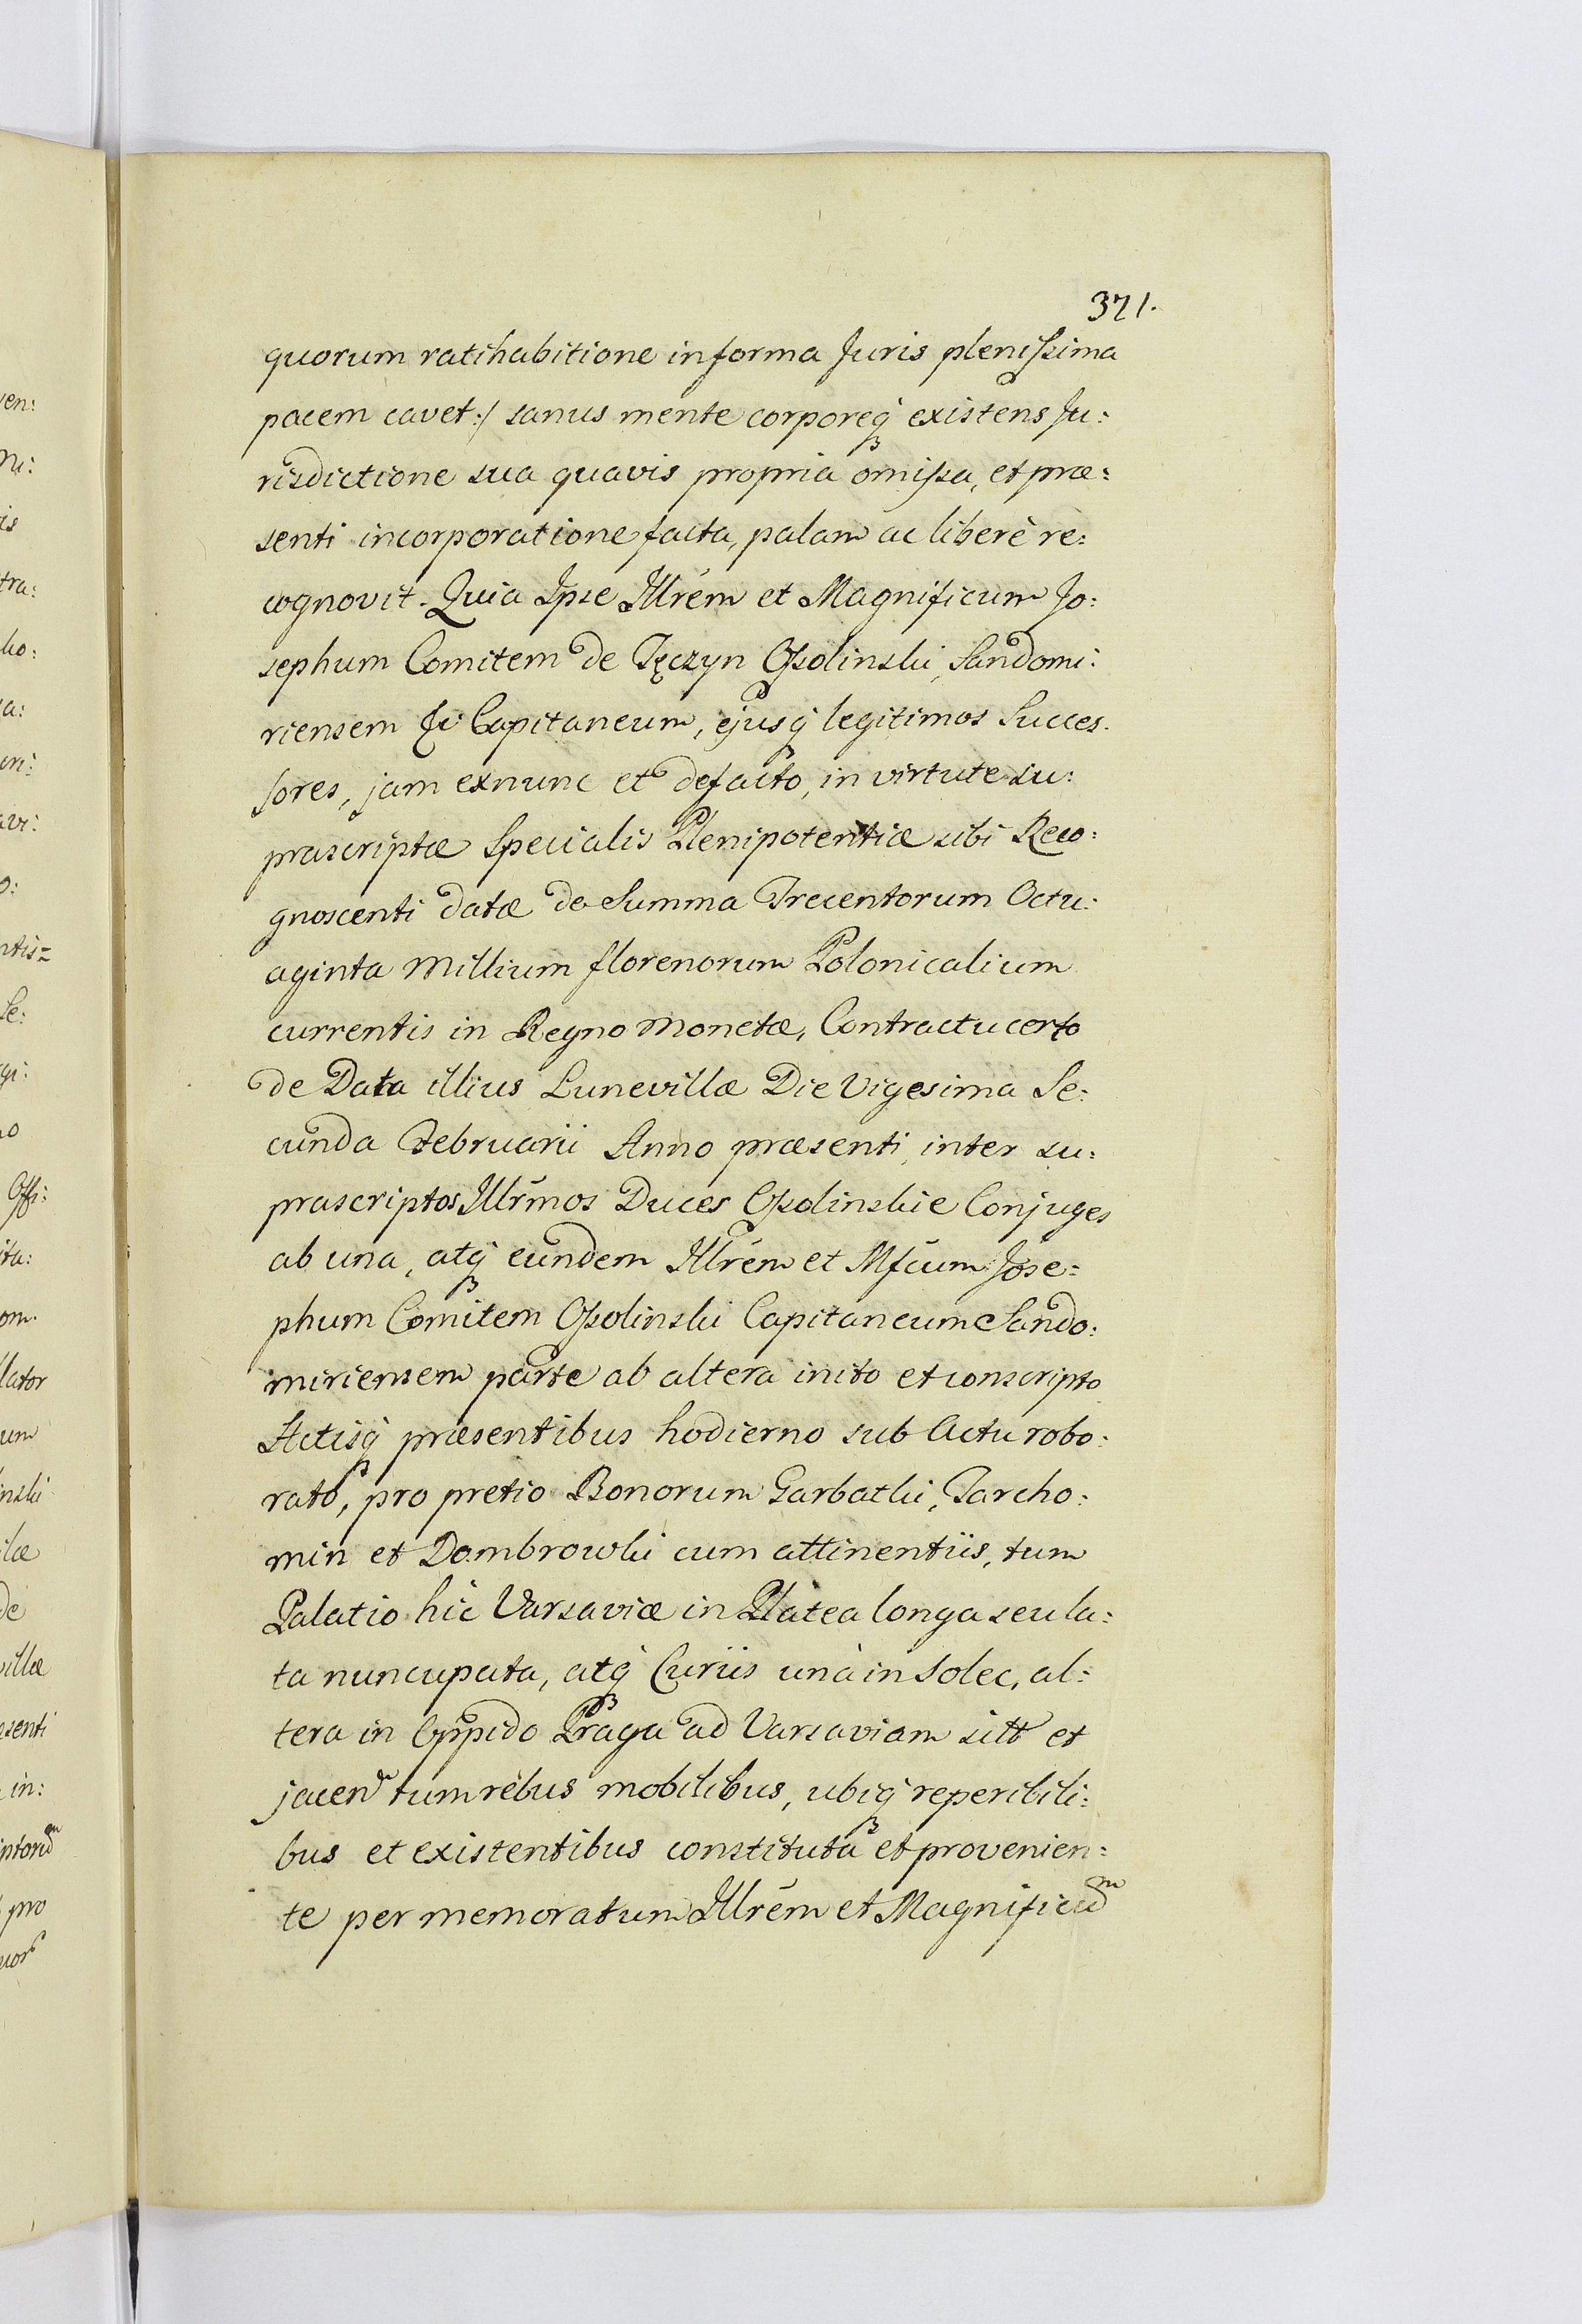 371.
quorum ratihabitione in forma Juris plenissima
pacem cavet :/ sanus mente corporeq; existens Ju:
risdictione sua quavis propria omissa, et præ:
senti incorporatione facta, palam ac liberè re:
cognovit. Quia Ipse Illrem et Magnificum Jo:
sephum Comitem de Tęczyn Ossolinski, Sandomi:
riensem &c Capitaneum, ejusq; legitimos Succes.
sores, jam exnunc et defacto, in virtute su:
prascriptæ Specialis Plenipotentiæ sibi Reco:
gnoscenti datæ de Summa Trecentorum Octu:
aginta Millium florenorum Polonicalium
currentis in Regno Monetæ, Contractu certo
de Data illius Lunevillæ Die Vigesima Se:
cunda Februarii Anno præsenti, inter su:
prascriptos Illrmos Duces Ossolinskie Conjuges
ab una, atq; eundem Illrem et Mfcum Jose:
phum Comitem Ossolinski Capitaneum Sando:
miriensem parte ab altera inito et conscripto
Actisq; præsentibus hodierno sub Actu robo:
rato, pro pretio Bonorum Garbatki, Tarcho:
min et Dombrowki cum attinentiis, tum
Palatio hic Varsaviæ in Platea longa seu la:
ta nuncupata, atq; Curiis unà in Solec, al:
tera in Oppido Praga ad Varsaviam sitt et
jacen tum rebus mobilibus, ubiq; reperibili:
bus et existentibus constituta et provenien:
te per memoratum Illrem et Magnificum